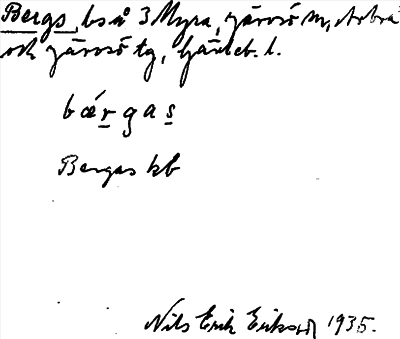 Bergs, bs å 3 Myra, Järvsö sn, Arbrå
och Järvsö tg, Gävleb. l.
bǽrgas
Bergas kb
Nils Erik Eriksson 1935.